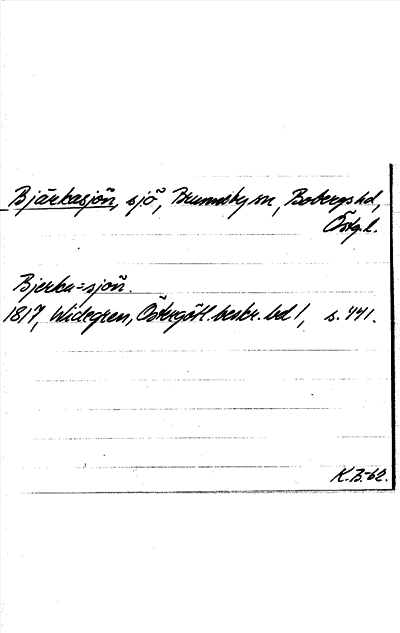 Bjärkasjön, sjö, Brunneby sn, Bobergs hd,
Östg.l.
Bjerka=sjön.
1817, Widegren, Östergötl. beskr. bd 1, s. 441.
K.B-62.